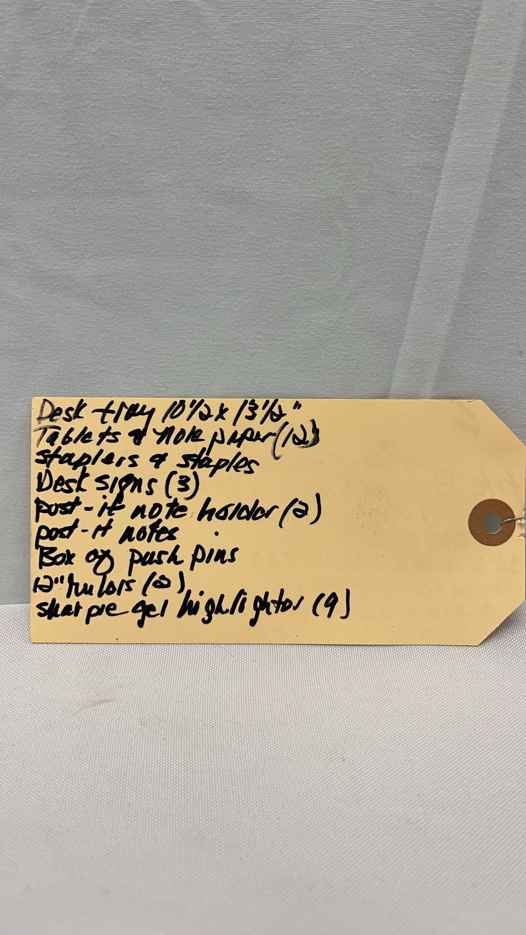 Desk tray 10 1/2 x 13 1/2"
Tablets & Note paper (12)
staplers & staples
Desk signs (3)
post-it note holder (2)
post-it notes
Box of push pins
12" rulors (2)
sharpie gel highlightor (9)